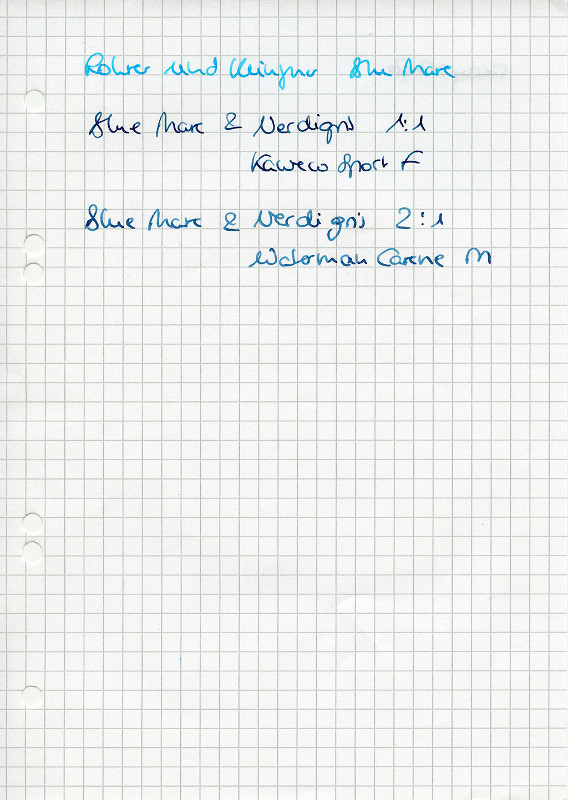 Rohrer und Klingner Blue Mare
Blue Mare & Verdigris 1:1
Kaweco Sport F
Blue Mare & Verdigris 2:1
Waterman Carene M